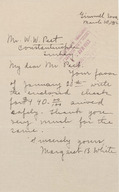 Grinnell, Iowa
March 14,
Mr. W. W. Peet
Constantinople
Turkey
My dear Mr. Peet
Your favor
of January 21st with
the enclosed check
for arrived
safely. Thank you
very much for the
same.
Sincerely yours,
Margaret B. White